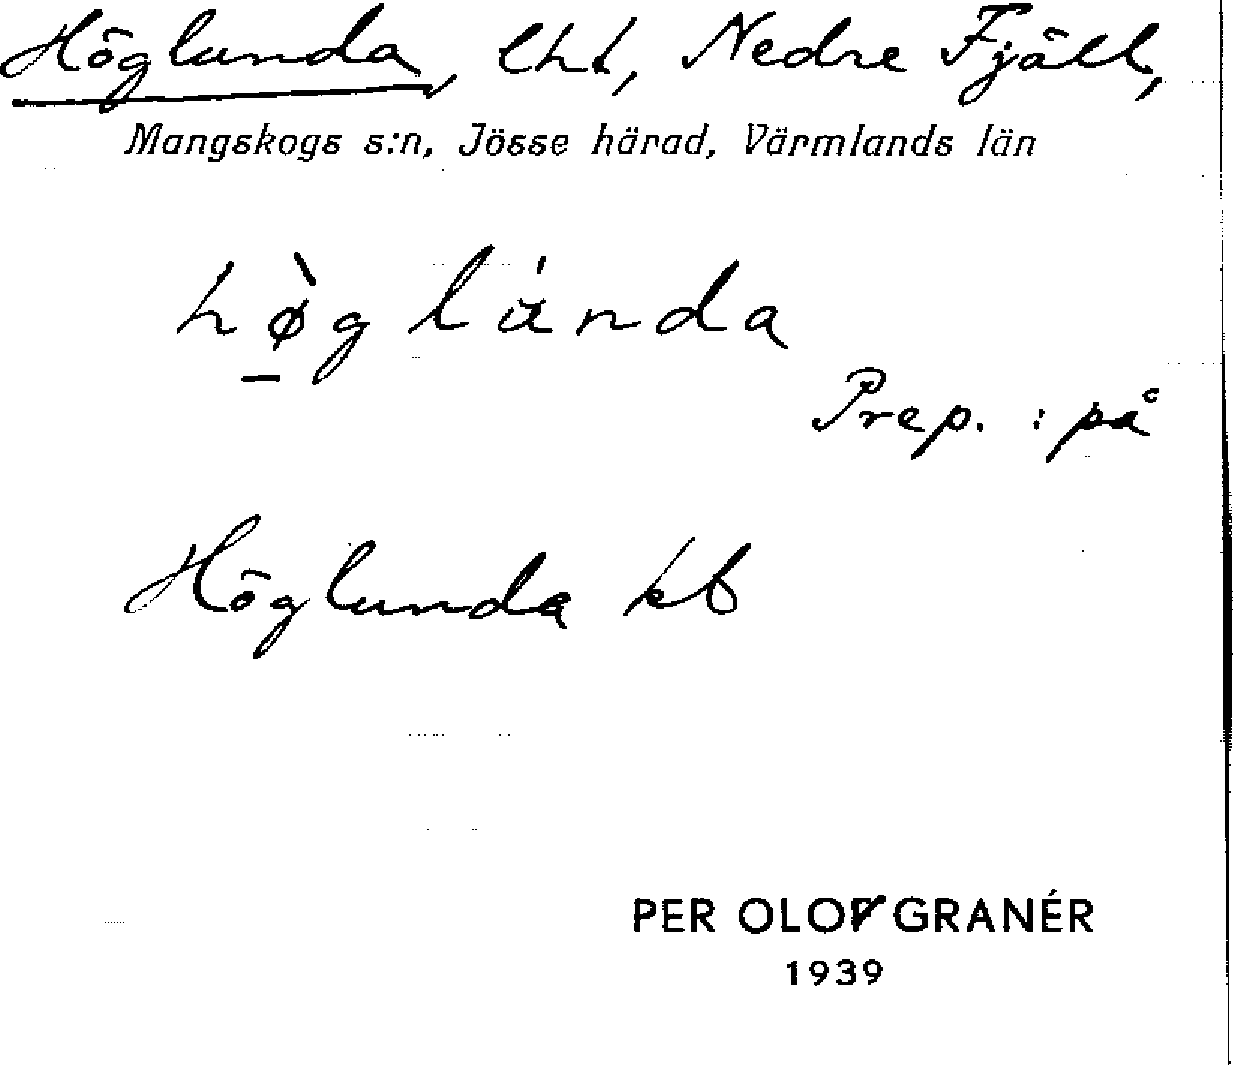 Höglunda, lht, Nedre Fjäll,
Mangskogs s:n, Jösse härad, Värmlands län
hø̀glúnda
Prep. : på
Höglunda kb
PER OLOV GRANÉR
1939